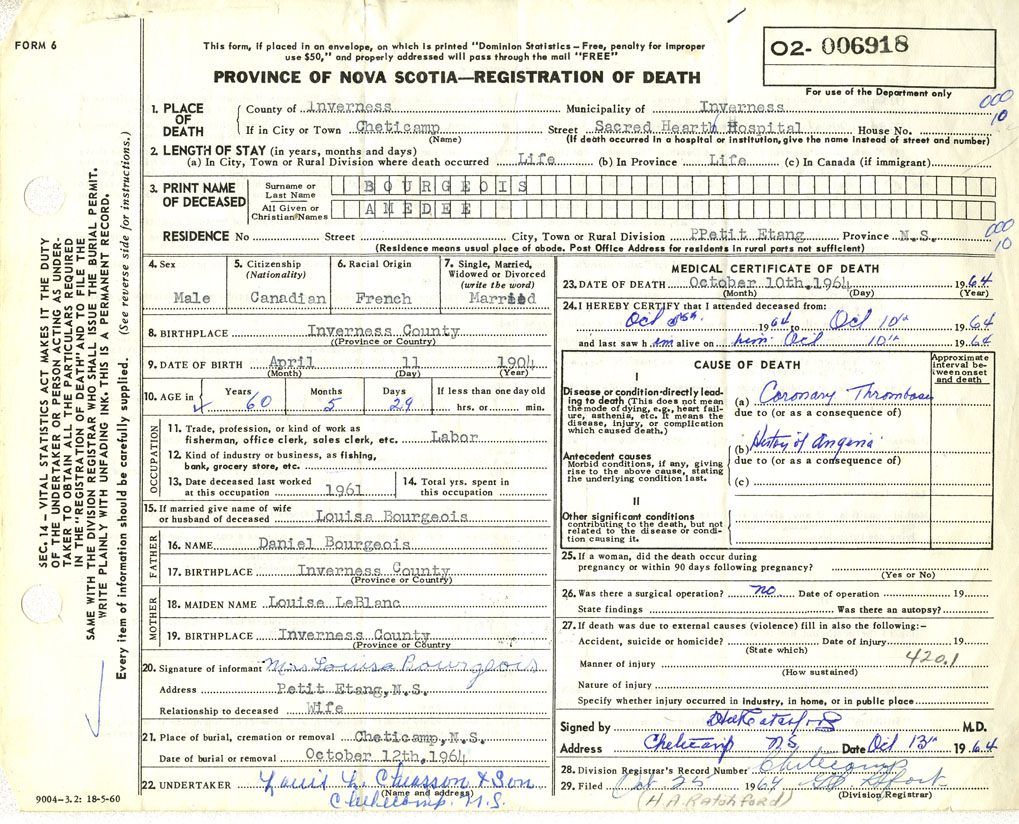 FORM 6
This form, if placed in an envelope, on which is printed "Dominion Statistics – Free, penalty for improper
use $50," and properly addressed will pass through the mail "FREE"
PROVINCE OF NOVA SCOTIA—REGISTRATION OF DEATH
02- 006918
For use of the Department only
SEC. 14 – VITAL STATISTICS ACT MAKES IT THE DUTY
OF THE UNDERTAKER OR PERSON ACTING AS UNDER-
TAKER TO OBTAIN ALL THE PARTICULARS REQUIRED
IN THE "REGISTRATION OF DEATH" AND TO FILE THE
SAME WITH THE DIVISION REGISTRAR WHO SHALL ISSUE THE BURIAL PERMIT.
WRITE PLAINLY WITH UNFADING INK. THIS IS A PERMANENT RECORD.
Every item of information should be carefully supplied. (See reverse side for instructions.)
1. PLACE OF DEATH
County of Inverness Municipality of Inverness
000
10
If in City or Town Cheticamp Street Sacred Heart Hospital House No.
(Name) (If death occurred in a hospital or institution, give the name instead of street and number)
2. LENGTH OF STAY (in years, months and days)
(a) In City, Town or Rural Division where death occurred Life (b) In Province Life (c) In Canada (if immigrant)
3. PRINT NAME OF DECEASED
Surname or Last Name BOURGEOIS
All Given or Christian Names AMEDEE
RESIDENCE No Street City, Town or Rural Division PPetit Etang Province N.S.
000
10
(Residence means usual place of abode. Post Office Address for residents in rural parts not sufficient)
4. Sex
Male
5. Citizenship
(Nationality)
Canadian
6. Racial Origin
French
7. Single, Married,
Widowed or Divorced
(write the word)
Married
8. BIRTHPLACE Inverness County
(Province or Country)
9. DATE OF BIRTH April 11 1904
(Month) (Day) (Year)
10. AGE in Years Months Days If less than one day old
60 5 29 hrs. or min.
OCCUPATION
11. Trade, profession, or kind of work as
fisherman, office clerk, sales clerk, etc. Labor
12. Kind of industry or business, as fishing,
bank, grocery store, etc.
13. Date deceased last worked
at this occupation 1961
14. Total yrs. spent in
this occupation
15. If married give name of wife
or husband of deceased Louisa Bourgeois
FATHER
16. NAME Daniel Bourgeois
17. BIRTHPLACE Inverness County
(Province or Country)
MOTHER
18. MAIDEN NAME Louise LeBlanc
19. BIRTHPLACE Inverness County
(Province or Country)
20. Signature of informant Mrs Louisa Bourgeois
Address Petit Etang, N.S.
Relationship to deceased Wife
21. Place of burial, cremation or removal Cheticamp, N.S.
Date of burial or removal October 12th, 1964
22. UNDERTAKER Louis L. Chiasson & Son
(Name and address)
Cheticamp. N.S.
9004–3.2: 18-5-60
MEDICAL CERTIFICATE OF DEATH
23. DATE OF DEATH October 10th, 1964 19 64
(Month) (Day) (Year)
24. I HEREBY CERTIFY that I attended deceased from:
Oct 1964 to Oct 10th 1964
and last saw h im alive on him Oct 10th 1964
CAUSE OF DEATH
Approximate interval between onset and death
I
Disease or condition directly lead-
ing to death (This does not mean
the mode of dying, e.g., heart fail-
ure, asthenia, etc. It means the
disease, injury, or complication
which caused death.)
(a) Coronary Thrombosis
due to (or as a consequence of)
(b) History of Angina
due to (or as a consequence of)
Antecedent causes
Morbid conditions, if any, giving
rise to the above cause, stating
the underlying condition last.
(c)
II
Other significant conditions
contributing to the death, but not
related to the disease or condi-
tion causing it.
25. If a woman, did the death occur during
pregnancy or within 90 days following pregnancy?
(Yes or No)
26. Was there a surgical operation? no Date of operation 19
State findings Was there an autopsy?
27. If death was due to external causes (violence) fill in also the following:–
Accident, suicide or homicide? Date of injury 19
(State which)
Manner of injury 420.1
(How sustained)
Nature of injury
Specify whether injury occurred in Industry, in home, or in public place
Signed by M.D.
Address Cheticamp N.S. Date Oct 13th 1964
28. Division Registrar's Record Number Cheticamp
29. Filed Oct 25 1964
(H.A. Ratchford) (Division Registrar)